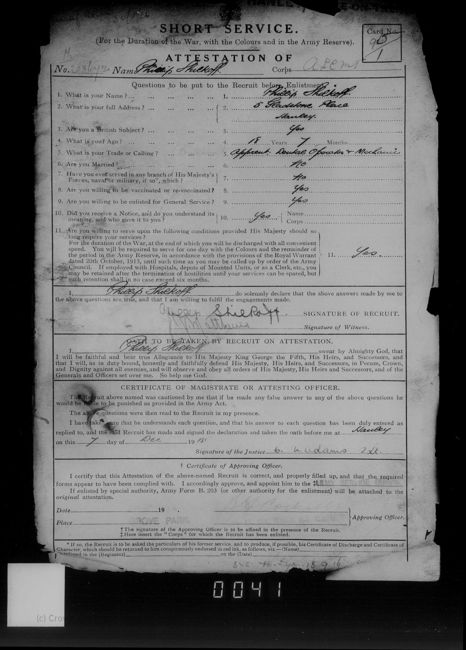 SHORT SERVICE.
(For the Duration of the War, with the Colours and in the Army Reserve).
Card No.
ATTESTATION OF
No. Name Phillip Shilkoff Corps
Questions to be put to the Recruit before Enlistment.
1. What is your Name? 1. Phillip Shilkoff
2. What is your full Address? 2. 5 Gladstone Place
Hanley
3. Are you a British Subject? 3. Yes
4. What is your Age? 4. 18 Years 7 Months
5. What is your Trade or Calling? 5. Apprent. Dental Operator & Mechanic
6. Are you Married? 6. No
7. Have you ever served in any branch of His Majesty's
Forces, naval or military, if so, which? 7. No
8. Are you willing to be vaccinated or re-vaccinated? 8. Yes
9. Are you willing to be enlisted for General Service? 9. Yes
10. Did you receive a Notice, and do you understand its
meaning, and who gave it to you? 10. Yes Name
Corps
11. Are you willing to serve upon the following conditions provided His Majesty should so
long require your services?
For the duration of the War, at the end of which you will be discharged with all convenient
speed. You will be required to serve for one day with the Colours and the remainder of
the period in the Army Reserve, in accordance with the provisions of the Royal Warrant
dated 20th October, 1915, until such time as you may be called up by order of the Army
Council. If employed with Hospitals, depots of Mounted Units, or as a Clerk, etc., you
may be retained after the termination of hostilities until your services can be spared, but
such retention shall in no case exceed six months. 11. Yes.
I, Phillip Shilkoff do solemnly declare that the above answers made by me to
the above questions are true, and that I am willing to fulfil the engagements made.
Phillip Shilkoff SIGNATURE OF RECRUIT.
Signature of Witness.
OATH TO BE TAKEN BY RECRUIT ON ATTESTATION.
I, Phillip Shilkoff swear by Almighty God, that
I will be faithful and bear true Allegiance to His Majesty King George the Fifth, His Heirs, and Successors, and
that I will, as in duty bound, honestly and faithfully defend His Majesty, His Heirs, and Successors, in Person, Crown,
and Dignity against all enemies, and will observe and obey all orders of His Majesty, His Heirs and Successors, and of the
Generals and Officers set over me. So help me God.
CERTIFICATE OF MAGISTRATE OR ATTESTING OFFICER.
The Recruit above named was cautioned by me that if he made any false answer to any of the above questions he
would be liable to be punished as provided in the Army Act.
The above questions were then read to the Recruit in my presence.
I have taken care that he understands each question, and that his answer to each question has been duly entered as
replied to, and the said Recruit has made and signed the declaration and taken the oath before me at Hanley
on this 7 day of Dec 1915
Signature of the Justice
† Certificate of Approving Officer.
I certify that this Attestation of the above-named Recruit is correct, and properly filled up, and that the required
forms appear to have been complied with. I accordingly approve, and appoint him to the
If enlisted by special authority, Army Form B. 203 (or other authority for the enlistment) will be attached to the
original attestation.
Date 19
Place Approving Officer.
† The signature of the Approving Officer is to be affixed in the presence of the Recruit.
‡ Here insert the "Corps" for which the Recruit has been enlisted.
* If so, the Recruit is to be asked the particulars of his former service, and to produce, if possible, his Certificate of Discharge and Certificate of
Character, which should be returned to him conspicuously endorsed in red ink, as follows, viz.—(Name)
enlisted in the (Regiment) on the (Date)
0041